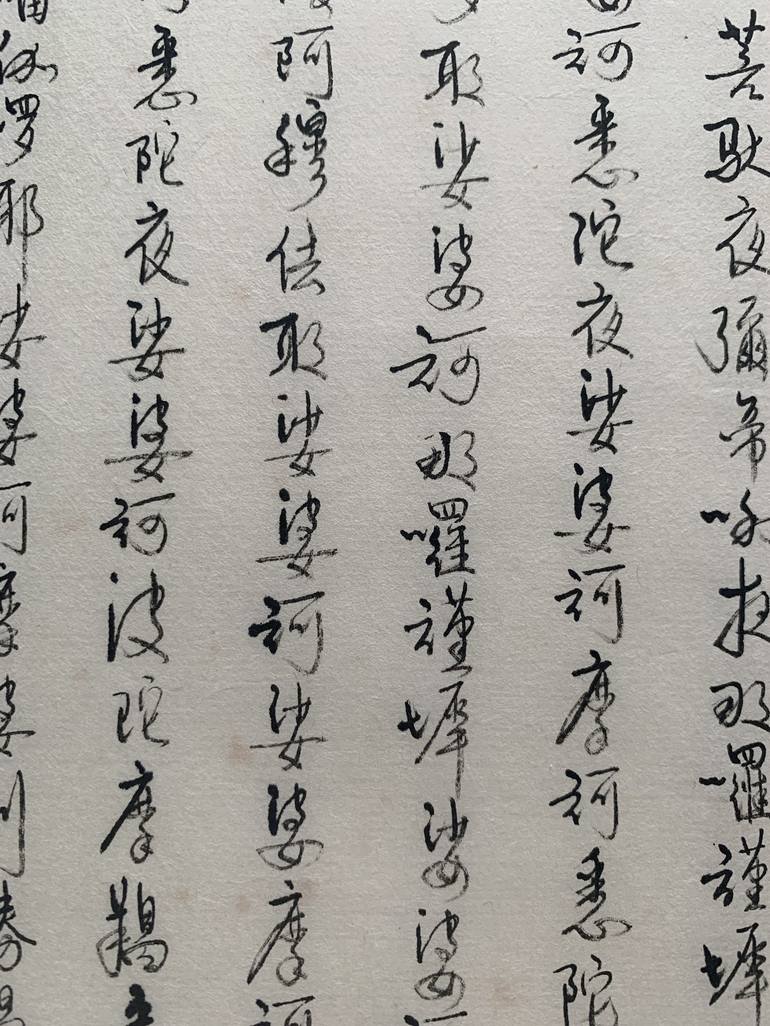 菩馱夜彌帝唎夜那囉謹墀
訶悉陀夜娑婆訶摩訶悉陀
耶娑婆訶那囉謹墀娑婆
阿穆佉耶娑婆訶娑婆摩訶
悉陀夜娑婆訶波陀摩羯
伽罗耶娑婆訶摩婆利勝